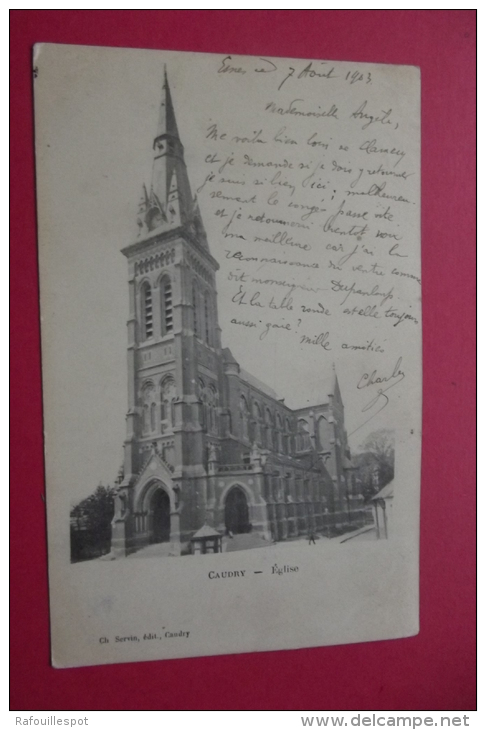 7 Août 1903
Mademoiselle Angèle,
Me voila bien loin de Clamecy
et je me demande si je dois y retourner
je suis si bien ici ; malheureu-
sement le congé passe vite
et je retournerai bientôt voir
ma meilleure car j'ai la
reconnaissance du ventre comme
dit monseigneur Dupanloup.
Et la table ronde est-elle toujours
aussi gaie? Mille amitiés
Charles
CAUDRY — Église
Ch. Servin, édit., Caudry
Rafouillespot
www.delcampe.net